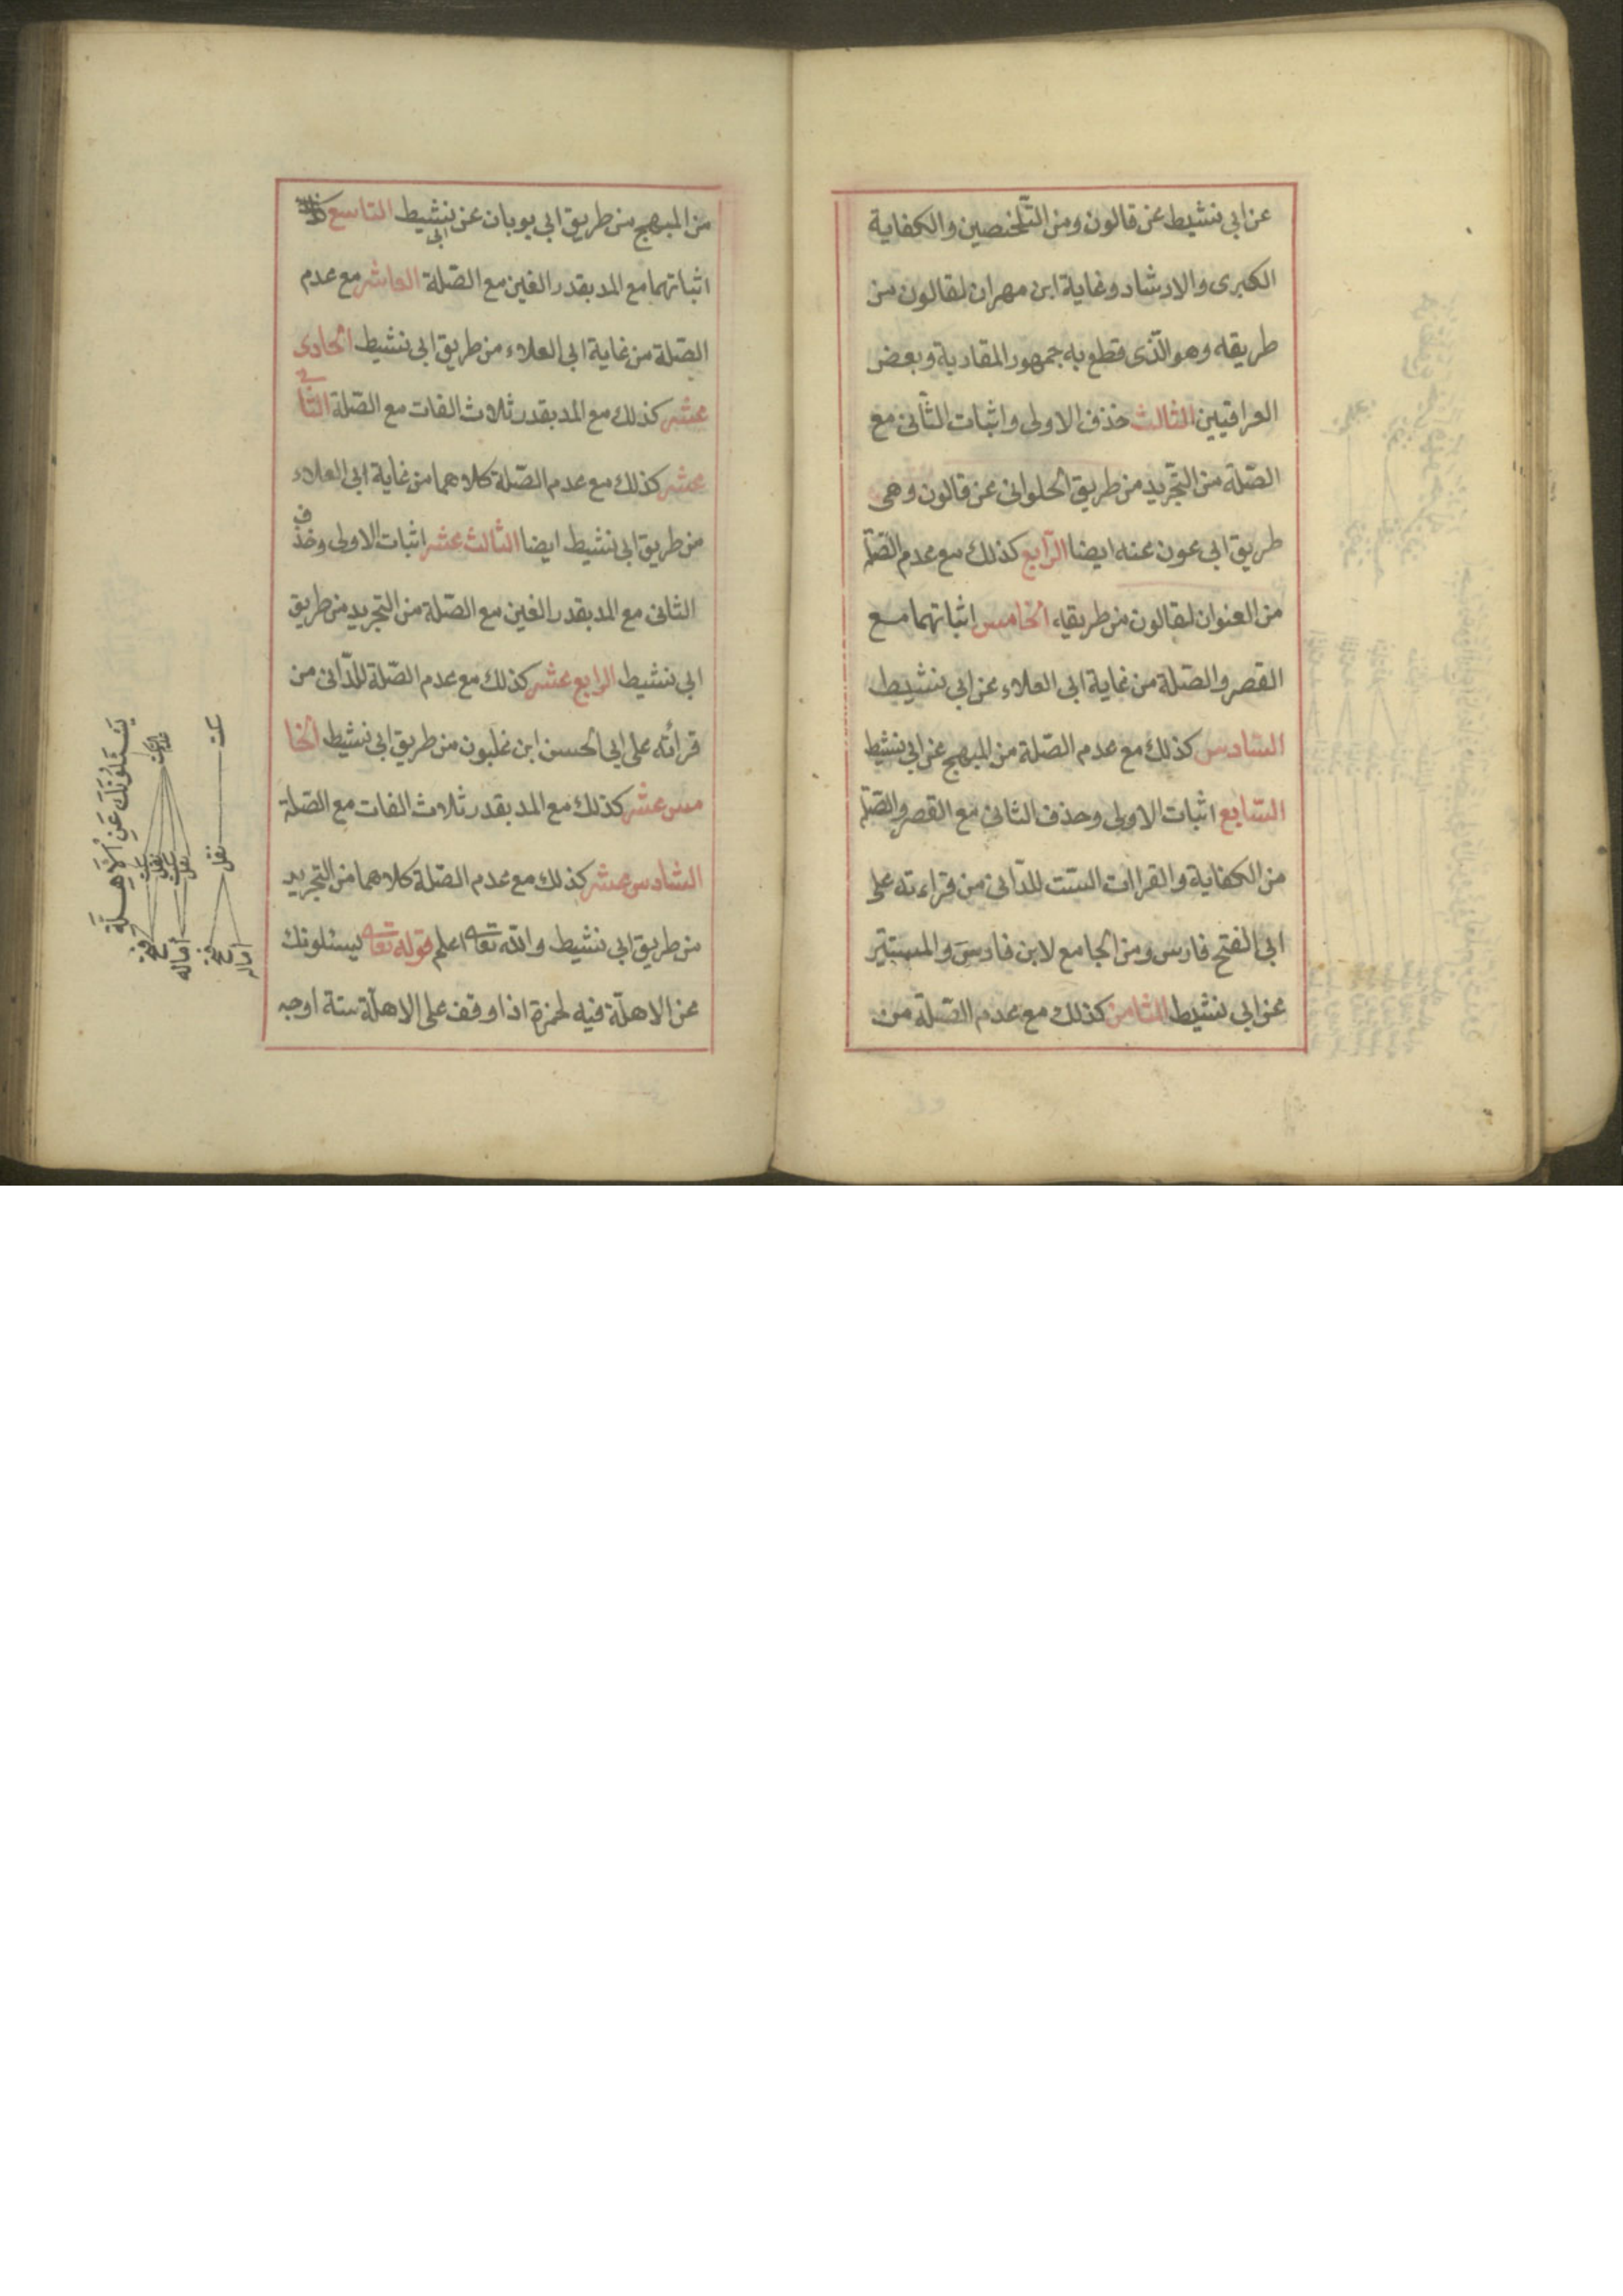 عن ابي نشيط عن قالون ومن التلخيصين والكفاية
الكبرى والارشاد وغاية ابن مهران لقالون من
طريقه وهو الذى قطع به جمهور المقاربة وبعض
العراقيين الثالث حذف الاولى واثبات الثانى مع
الصّلة من التجريد من طريق الحلوانى عن قالون وهى
طريق ابى عون عنه ايضا الرابع كذلك مع عدم الصّلة
من العنوان لقالون من طريقيه الخامس اثباتهما مع
القصر والصّلة من غاية ابى العلاء عن ابى نشيط
السّادس كذلك مع عدم الصّلة من المبهج عن ابى نشيط
السّابع اثبات الاولى وحذف الثانى مع القصر والصّلة
من الكفاية والقراات الستت للدّانى من قراءته على
ابى الفتح فارس ومن الجامع لابن فارس والمستنير
عن ابى نشيط الثامن كذلك مع عدم الصّلة من
من المبهج من طريق ابى بويان عن ابى نشيط التاسع
اثباتهما مع المد بقدر الفين مع الصّلة العاشر مع عدم
الصّلة من غاية ابى العلاء من طريق ابى نشيط الحادى
عشر كذلك مع المد بقدر ثلاث الفات مع الصّلة الثانى
عشر كذلك مع عدم الصّلة كلاهما من غاية ابى العلاء
من طريق ابى نشيط ايضا الثالث عشر اثبات الاولى وحذف
الثانى مع المد بقدر الفين مع الصّلة من التجريد من طريق
ابى نشيط الرابع عشر كذلك مع عدم الصّلة للدّانى من
قرائته على ابى الحسن ابن غلبون من طريق ابى نشيط الخا
مس عشر كذلك مع المد بقدر ثلاث الفات مع الصّلة
السّادس عشر كذلك مع عدم الصّلة كلاهما من التجريد
من طريق ابى نشيط والله تعا اعلم قوله تعا يسئلونك
عن الاهلّة فيه لحمزة اذا وقف على الاهلّة ستة اوجه
يَسْـَٔلُونَكَ عَنِ الْاَهِـلَّةِ
سكت
نقل
فتح
اماله
نقل
سكت
نقل
فتح
اماله